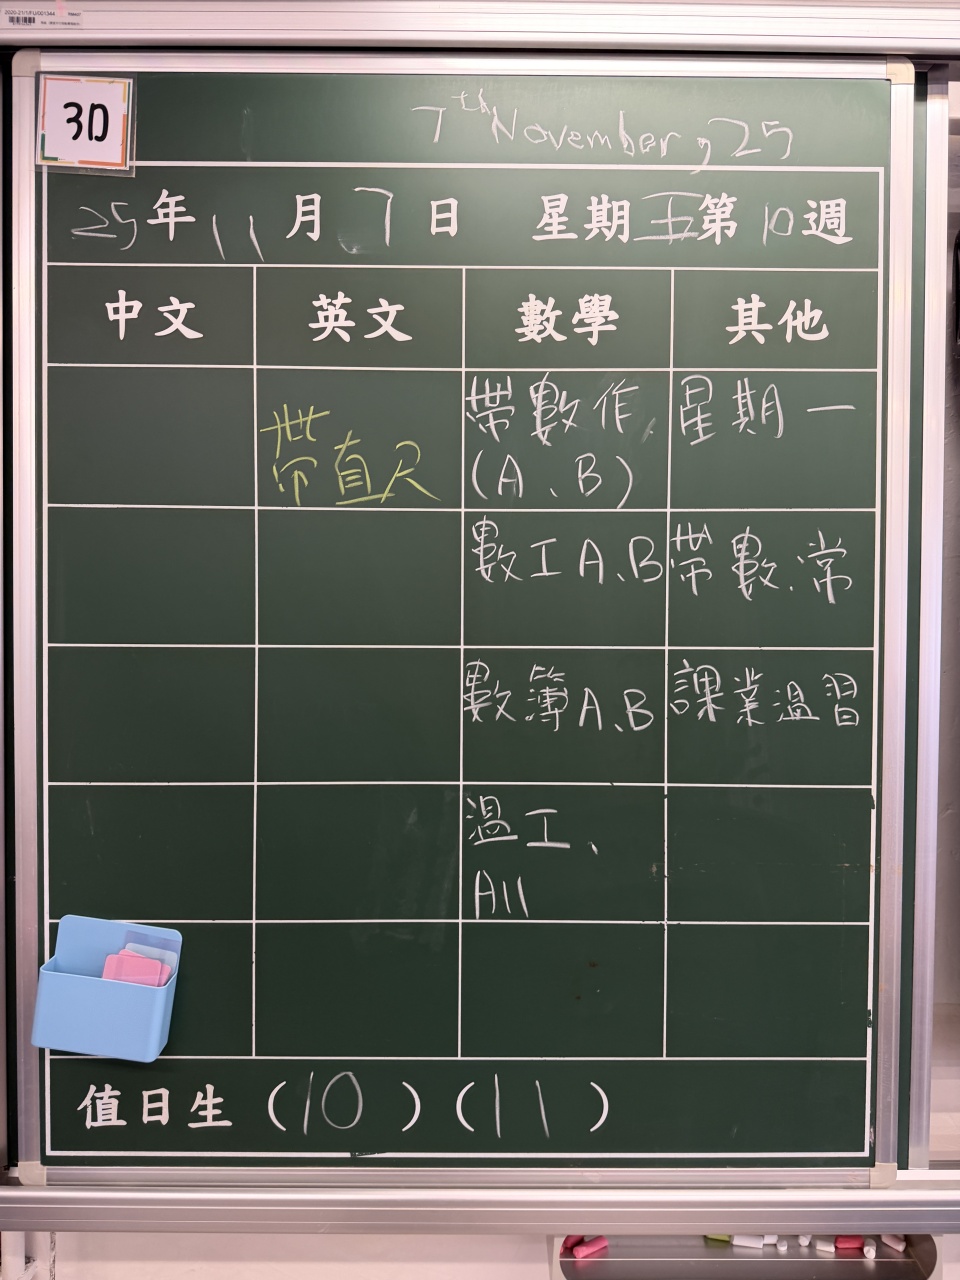 2020-21/1/FU/001344
3D
7th November, 25
25年11月7日 星期五第10週
中文 英文 數學 其他
帶直尺
帶數作
(A、B)
星期一
數工A、B
帶數.常
數簿A、B
課業溫習
溫工、
All
值日生(10)(11)